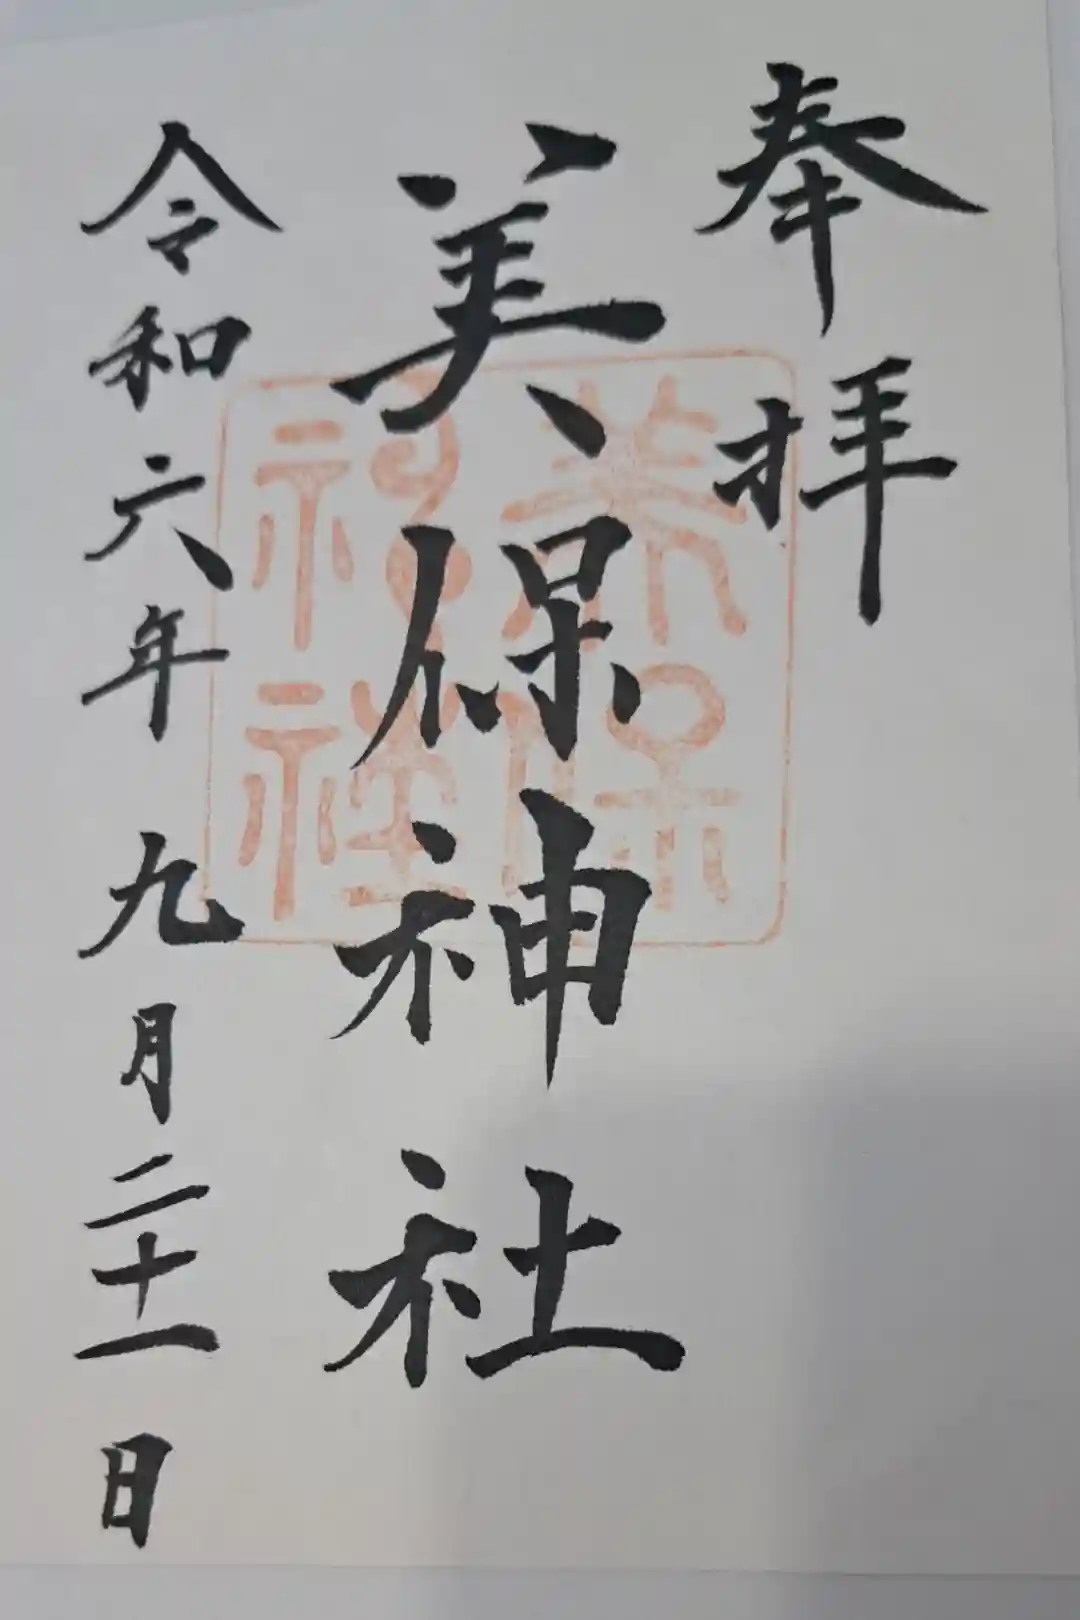 奉拝
美保神社
美保神社
令和六年九月二十一日